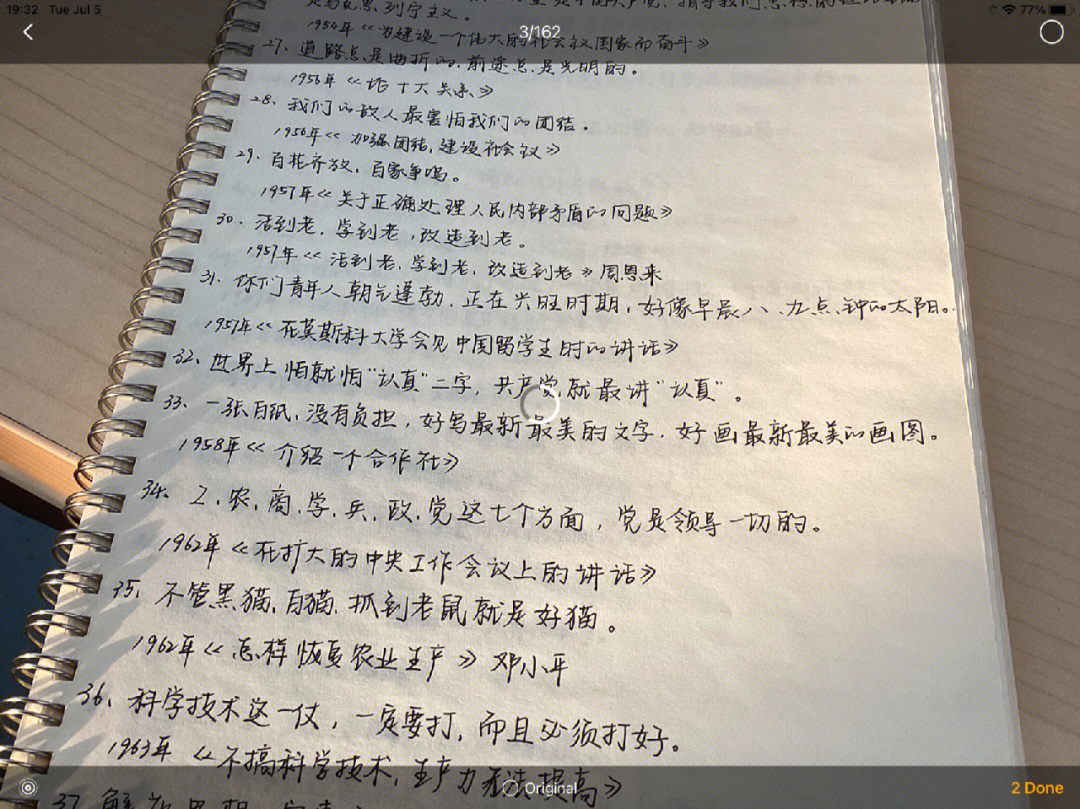 19:32 Tue Jul 5
77%
3/162
是马克思列宁主义。
1954年《为建设一个伟大的社会主义国家而奋斗》
27、道路总是曲折的,前途总是光明的。
1956年《论十大关系》
28、我们的敌人最害怕我们的团结。
1956年《加强团结,建设社会主义》
29、百花齐放,百家争鸣。
1957年《关于正确处理人民内部矛盾的问题》
30、活到老,学到老,改造到老。
1957年《活到老,学到老,改造到老》周恩来
31、你们青年人朝气蓬勃,正在兴旺时期,好像早晨八、九点钟的太阳。
1957年《在莫斯科大学会见中国留学生时的讲话》
32、世界上怕就怕“认真”二字,共产党就最讲“认真”。
33、一张白纸,没有负担,好写最新最美的文字,好画最新最美的画图。
1958年《介绍一个合作社》
34、工、农、商、学、兵、政、党这七个方面,党是领导一切的。
1962年《在扩大的中央工作会议上的讲话》
35、不管黑猫、白猫,抓到老鼠就是好猫。
1962年《怎样恢复农业生产》邓小平
36、科学技术这一仗,一定要打,而且必须打好。
1963年《不搞科学技术,生产力无法提高》
37、解放思想
Original
2 Done